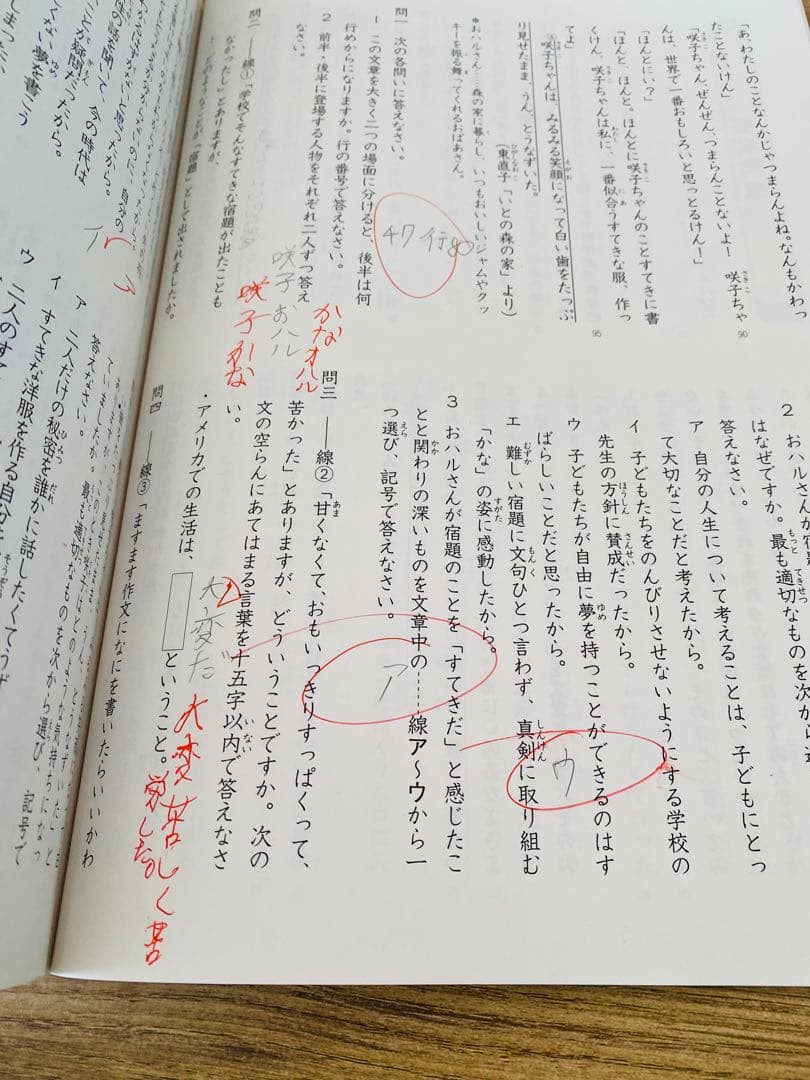 「あ、わたしのことなんかじゃつまらんよね。なんもかわっ
たことないけん」
「咲子ちゃん、ぜんぜん、つまらんことないよ！　咲子ちゃ
んは、世界で一番おもしろいと思っとるけん！」
「ほんとにぃ？」
「ほんと、ほんと。ほんとに咲子ちゃんのことすてきに書
くけん、咲子ちゃんは私に、一番似合うすてきな服、作っ
てよ」
④咲子ちゃんは、みるみる笑顔になって白い歯をたっぷ
り見せたまま、うん、とうなずいた。
（東直子「いとの森の家」より）
＊おハルさん……森の家に暮らし、いつもおいしいジャムやクッ
キーを振る舞ってくれるおばあさん。
問一　次の各問いに答えなさい。
1　この文章を大きく二つの場面に分けると、後半は何
行めからになりますか。行の番号で答えなさい。
47行め
2　前半・後半に登場する人物をそれぞれ二人ずつ答え
なさい。
咲子おハル
かなオハル
咲子かな
問二　――線①「学校でそんなすてきな宿題が出たことも
なかったし」とありますが、
1　どのようなことが「宿題」として出されましたか。
2　おハルさんが宿題
はなぜですか。最も適切なものを次から選
答えなさい。
ア　自分の人生について考えることは、子どもにとっ
て大切なことだと考えたから。
イ　子どもたちをのんびりさせないようにする学校の
先生の方針に賛成だったから。
ウ　子どもたちが自由に夢を持つことができるのはす
ばらしいことだと思ったから。
エ　難しい宿題に文句ひとつ言わず、真剣に取り組む
「かな」の姿に感動したから。
ウ
3　おハルさんが宿題のことを「すてきだ」と感じたこ
とと関わりの深いものを文章中の……線ア〜ウから一
つ選び、記号で答えなさい。
ア
問三　――線②「甘くなくて、おもいっきりすっぱくって、
苦かった」とありますが、どういうことですか。次の
文の空らんにあてはまる言葉を十五字以内で答えなさ
い。
・アメリカでの生活は、　　ということ。
大変だ
大変苦しく苦
労したから
問四　――線③「ますます作文になにを書いたらいいかわ
ア
ア
今の時代は
ことが疑問だったから。
くない夢を書こう
しまった、
ていましたか。最も適切なものを次から選び、記号で
答えなさい。
ア　二人だけの秘密を誰かに話したくてうず
イ　すてきな洋服を作る自分を
ウ　二人のすて